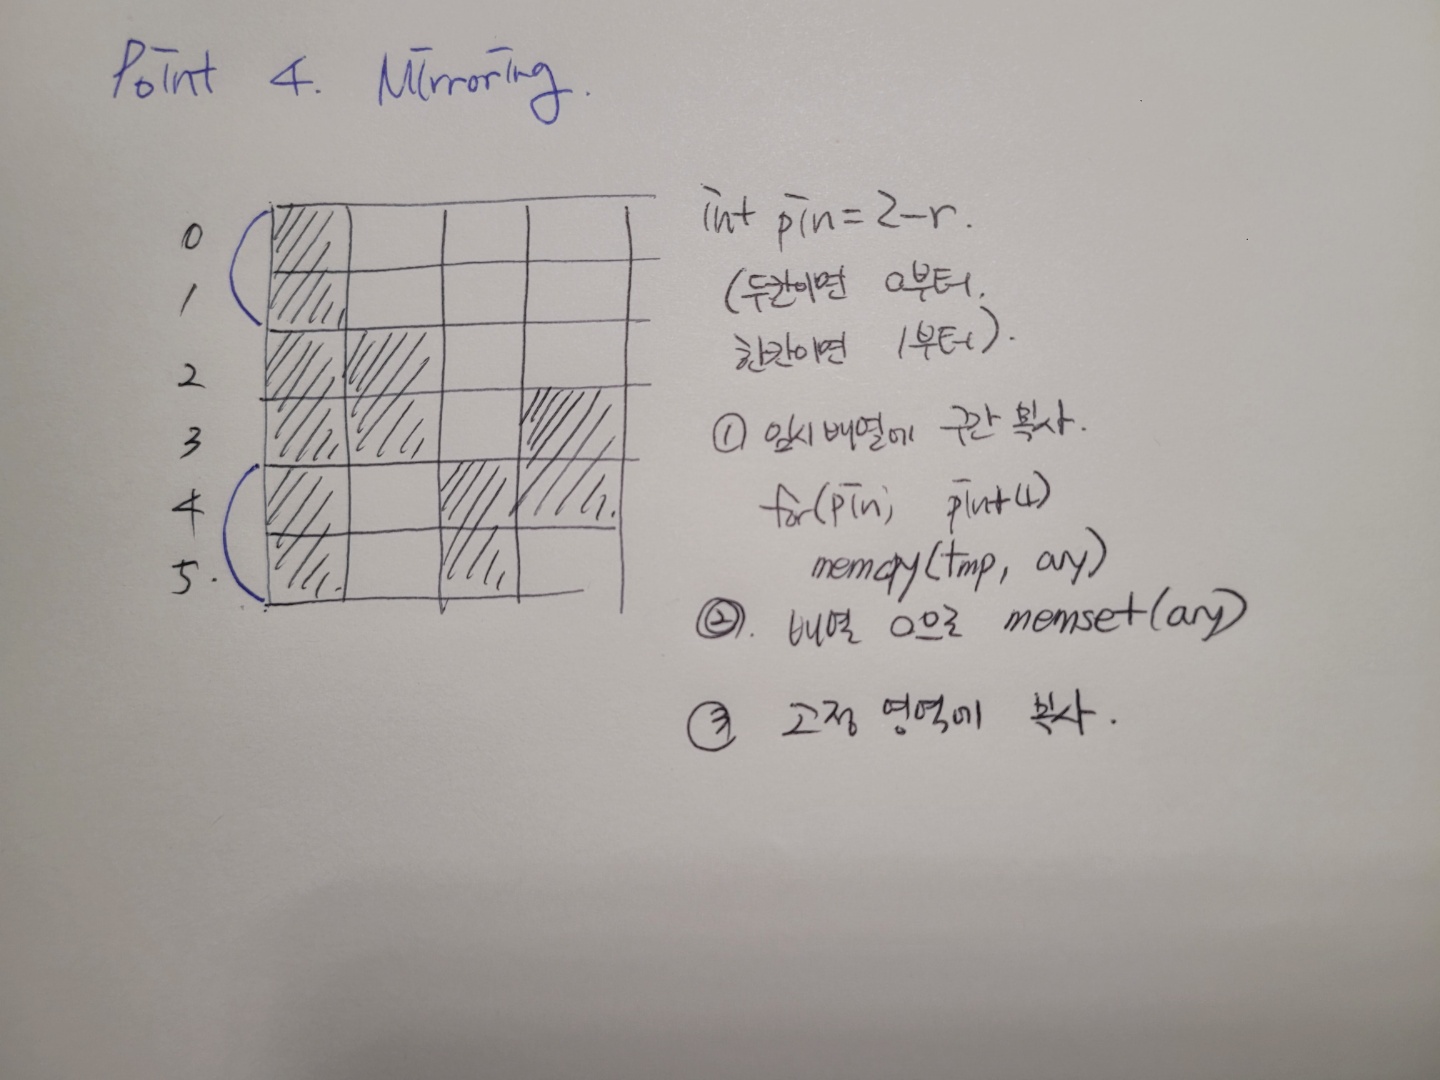 Point 4. Mirroring.
0
1
2
3
4
5.
int pin = 2-r.
(두칸이면 0부터.
한칸이면 1부터).
① 임시배열에 구간 복사.
for(pin; pin+4)
memcpy(tmp, ary)
②. 배열 0으로 memset(ary)
③ 고정 영역에 복사.